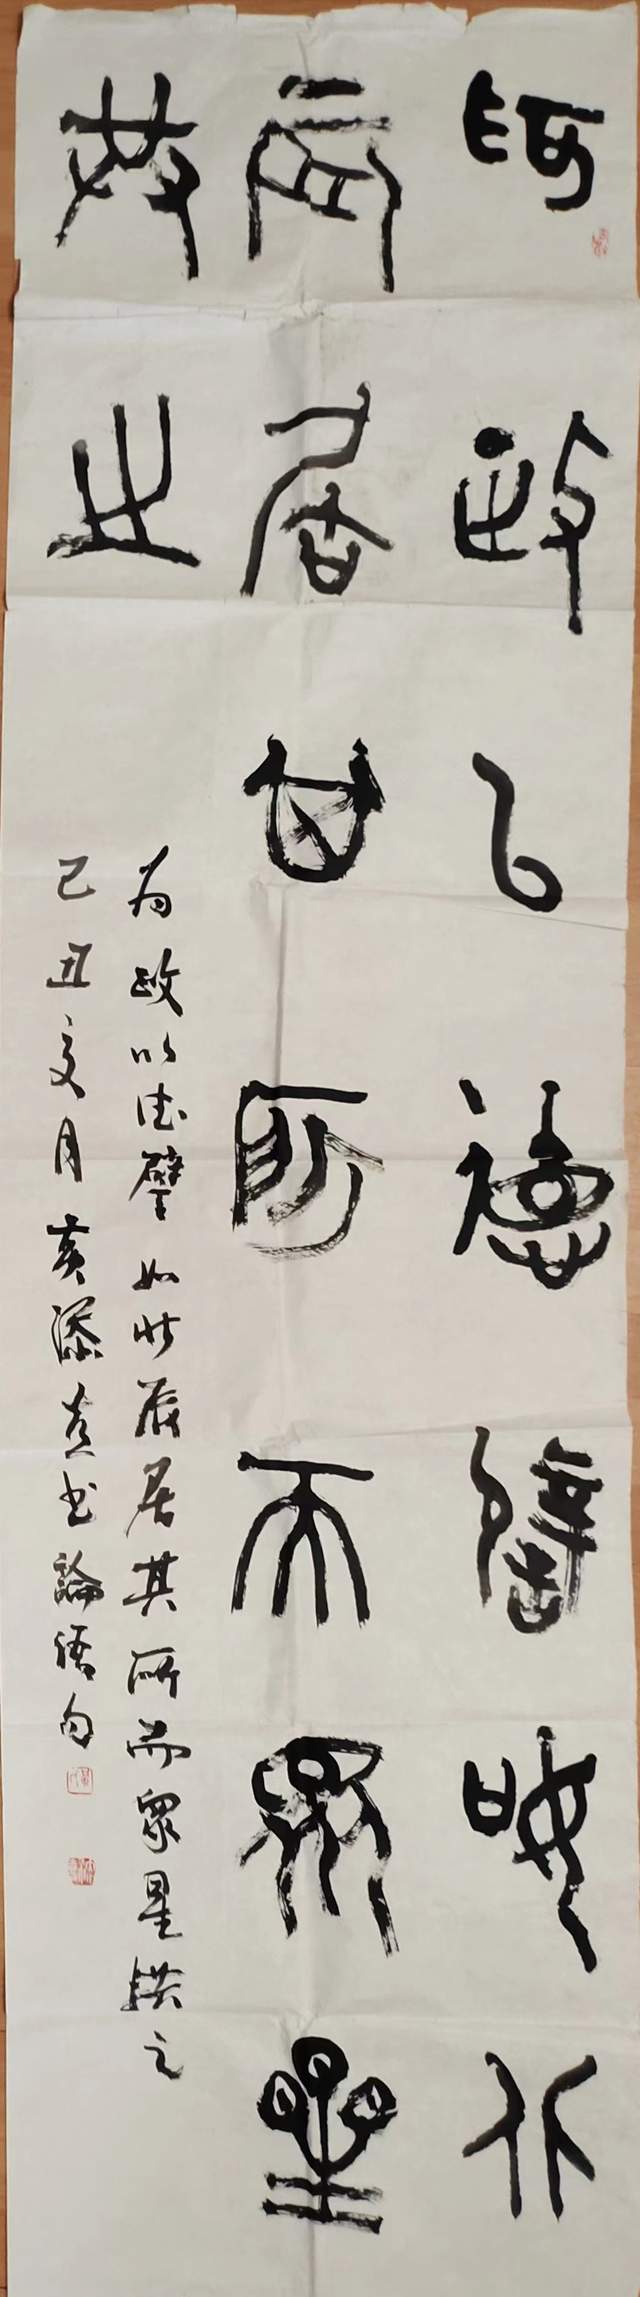 为政以德譬如北
辰居其所而众星
共之
为政以德譬如北辰居其所而眾星拱之
己丑文月黄添贵书論语句